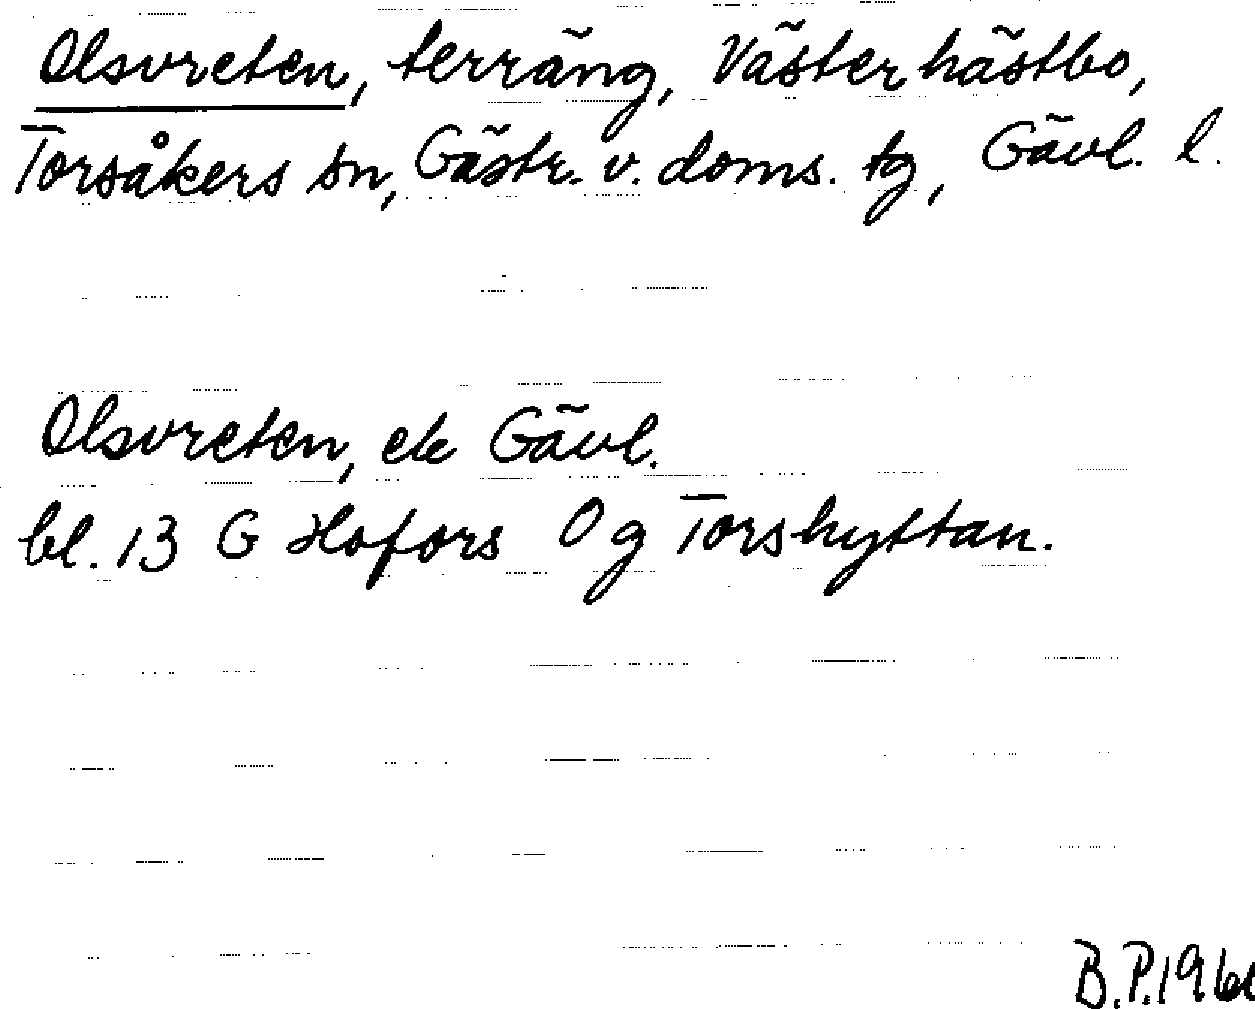 Olsvreten, terräng, Västerhästbo,
Torsåkers sn, Gästr. v. doms. tg, Gävl. l.
Olsvreten, ek Gävl.
bl. 13 G Hofors O g Torshyttan.
B.P.